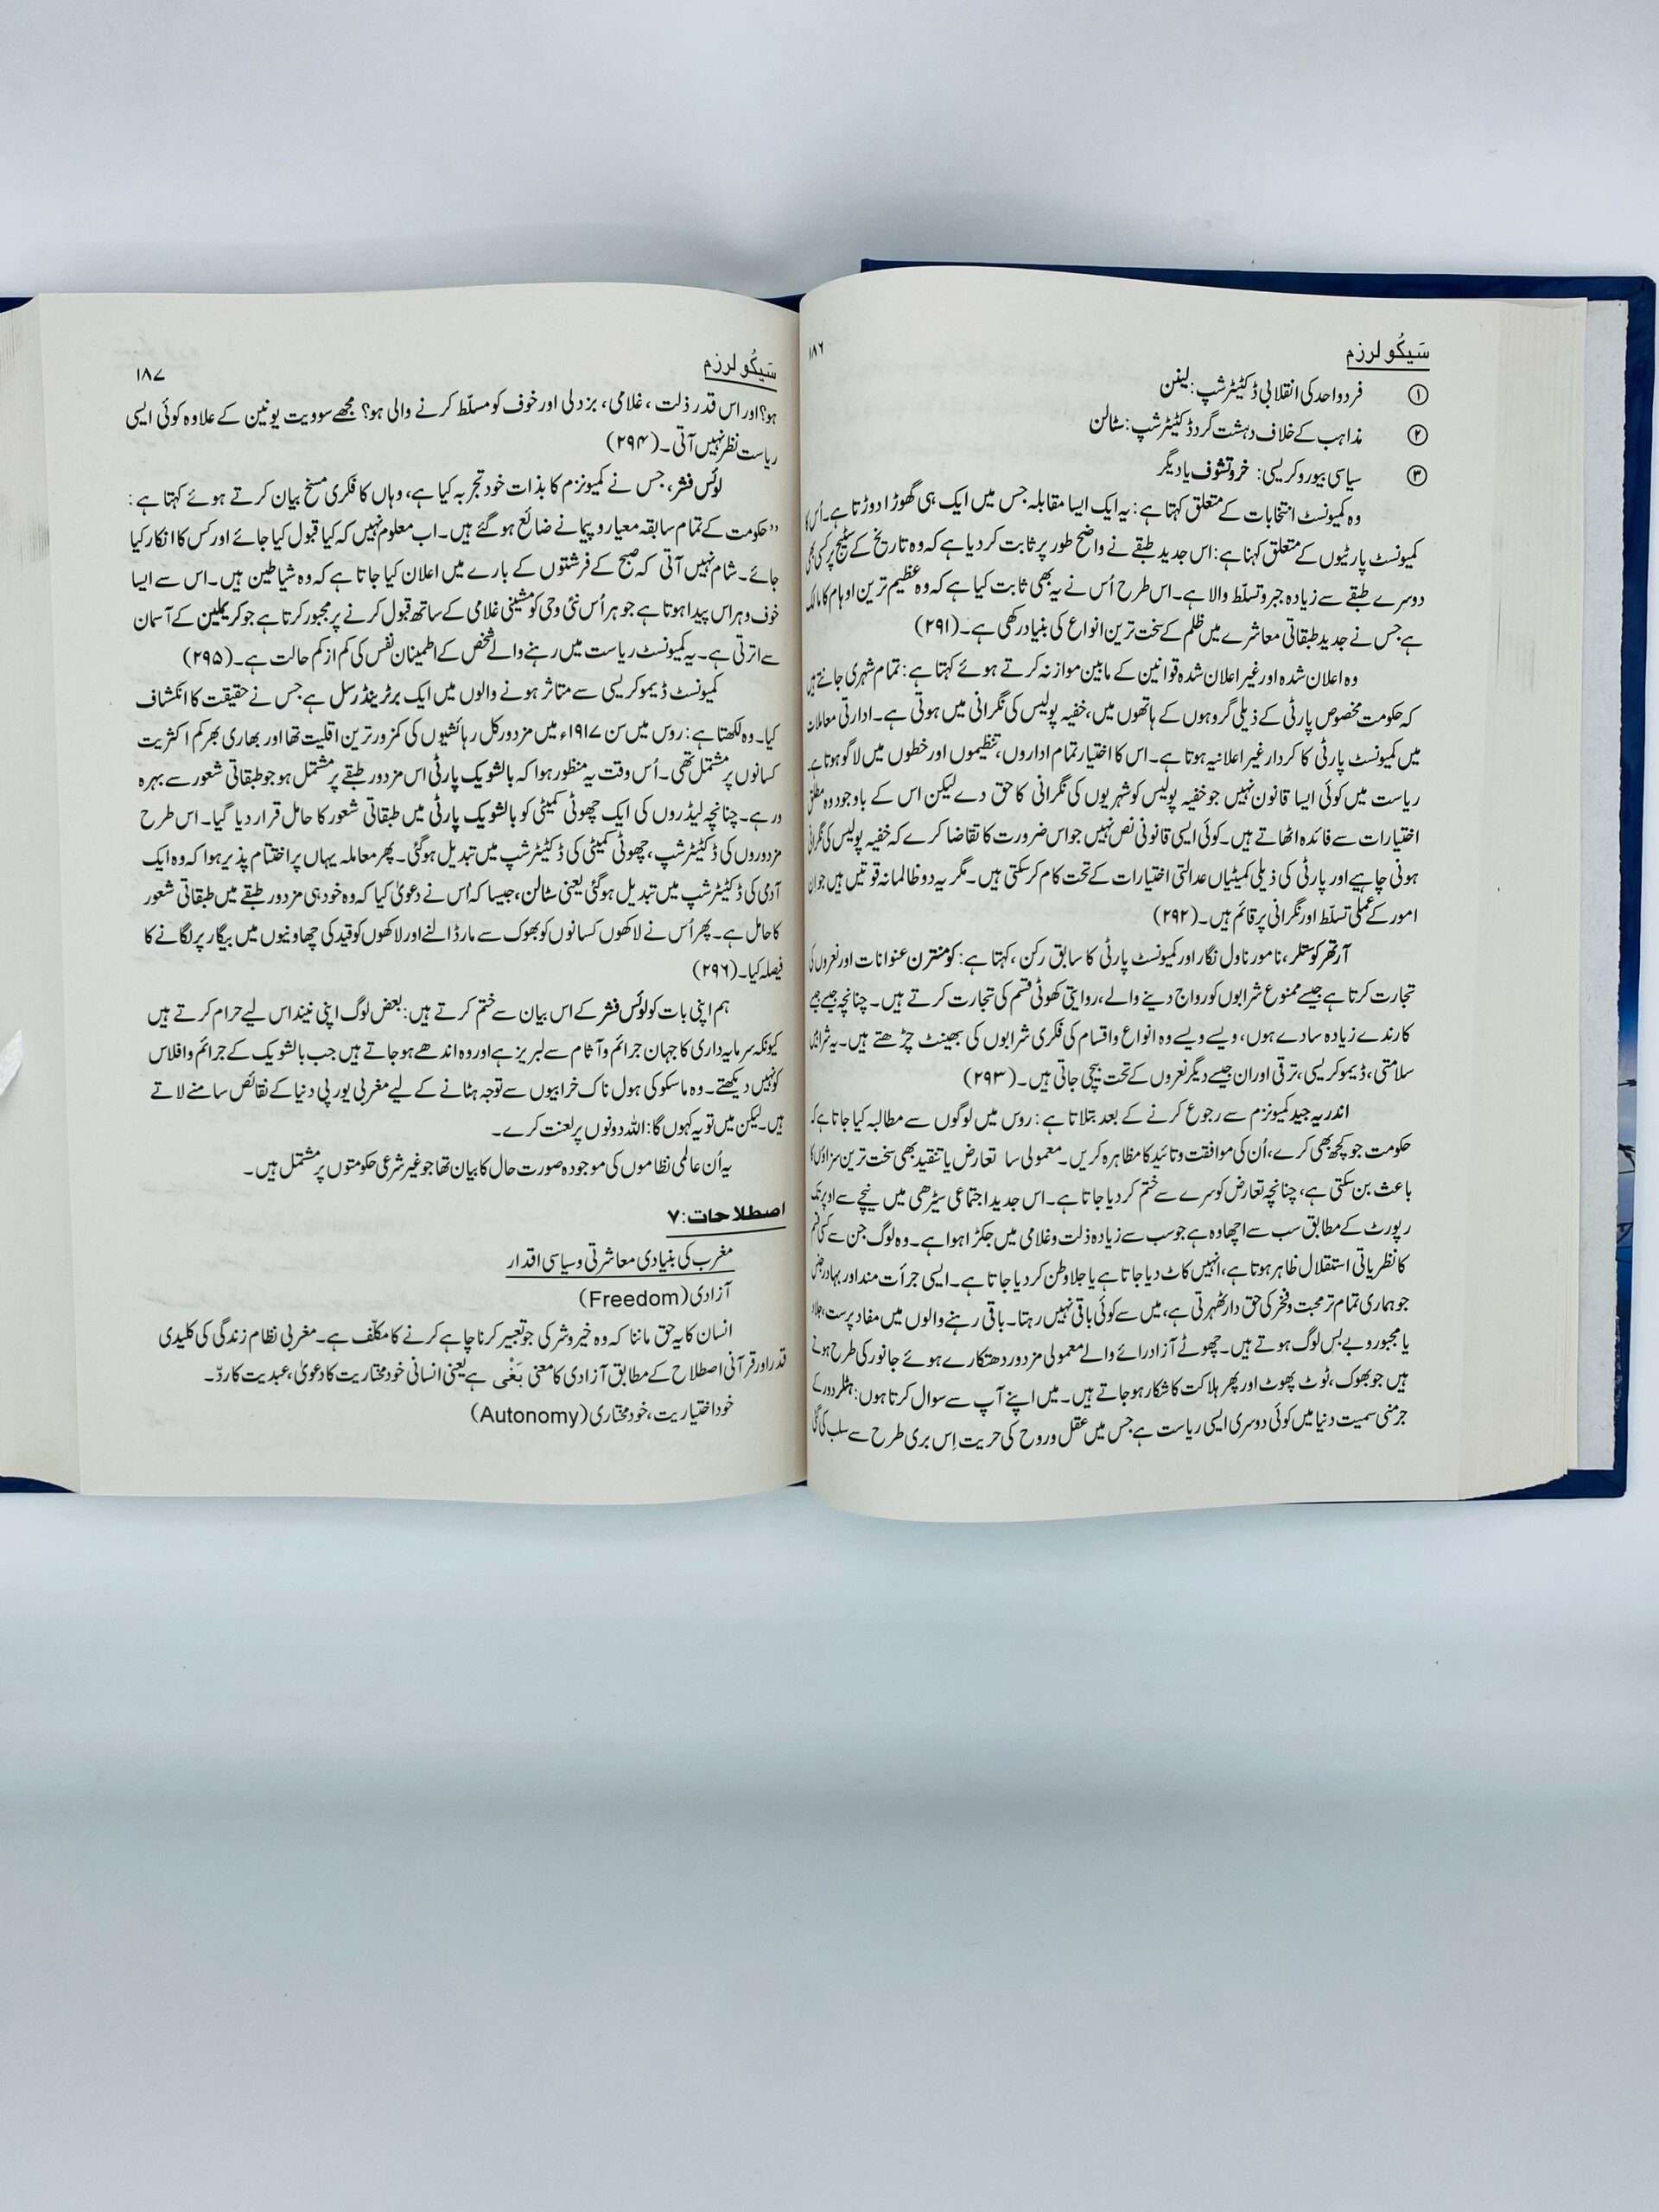 سَیکُولرزم
۱۸۶
① فردِ واحد کی انقلابی ڈکٹیٹرشپ: لینن
② مذاہب کے خلاف دہشت گرد ڈکٹیٹرشپ: سٹالن
③ سیاسی بیوروکریسی: خروتشوف یا دیگر
وہ کمیونسٹ انتخابات کے متعلق کہتا ہے: یہ ایک ایسا مقابلہ جس میں ایک ہی گھوڑا دوڑتا ہے۔ اُس کا
کمیونسٹ پارٹیوں کے متعلق کہنا ہے: اس جدید طبقے نے واضح طور پر ثابت کر دیا ہے کہ وہ تاریخ کے سٹیج پر کسی بھی
دوسرے طبقے سے زیادہ جبر و تسلّط والا ہے۔ اس طرح اُس نے یہ بھی ثابت کیا ہے کہ وہ عظیم ترین اوہام کا مالک
ہے جس نے جدید طبقاتی معاشرے میں ظلم کے سخت ترین انواع کی بنیاد رکھی ہے۔ (۲۹۱)
وہ اعلان شدہ اور غیر اعلان شدہ قوانین کے مابین موازنہ کرتے ہوئے کہتا ہے: تمام شہری جانتے ہیں
کہ حکومت مخصوص پارٹی کے ذیلی گروہوں کے ہاتھوں میں، خفیہ پولیس کی نگرانی میں ہوتی ہے۔ ادارتی معاملات
میں کمیونسٹ پارٹی کا کردار غیر اعلانیہ ہوتا ہے۔ اس کا اختیار تمام اداروں، تنظیموں اور خطوں میں لاگو ہوتا ہے۔
ریاست میں کوئی ایسا قانون نہیں جو خفیہ پولیس کو شہریوں کی نگرانی کا حق دے لیکن اس کے باوجود وہ مطلق
اختیارات سے فائدہ اٹھاتے ہیں۔ کوئی ایسی قانونی نص نہیں جو اس ضرورت کا تقاضا کرے کہ خفیہ پولیس کی نگرانی
ہونی چاہیے اور پارٹی کی ذیلی کمیٹیاں عدالتی اختیارات کے تحت کام کر سکتی ہیں۔ مگر یہ دو ظالمانہ قوتیں ہیں جو ان
امور کے عملی تسلّط اور نگرانی پر قائم ہیں۔ (۲۹۲)
آرتھر کوستلر، نامور ناول نگار اور کمیونسٹ پارٹی کا سابق رکن، کہتا ہے: کومنترن عنوانات اور نعروں کی
تجارت کرتا ہے جیسے ممنوع شرابوں کو رواج دینے والے، روایتی کھوٹی قسم کی تجارت کرتے ہیں۔ چنانچہ جیسے جیسے
کارندے زیادہ سادے ہوں، ویسے ویسے وہ انواع و اقسام کی فکری شرابوں کی بھینٹ چڑھتے ہیں۔ یہ شرابیں
سلامتی، ڈیموکریسی، ترقی اور ان جیسے دیگر نعروں کے تحت بیچی جاتی ہیں۔ (۲۹۳)
اندریہ جید کمیونزم سے رجوع کرنے کے بعد بتلاتا ہے: روس میں لوگوں سے مطالبہ کیا جاتا ہے کہ
حکومت جو کچھ بھی کرے، اُن کی موافقت و تائید کا مظاہرہ کریں۔ معمولی سا تعارض یا تنقید بھی سخت ترین سزاؤں کا
باعث بن سکتی ہے، چنانچہ تعارض کو سرے سے ختم کر دیا جاتا ہے۔ اس جدید اجتماعی سیڑھی میں نیچے سے اوپر تک
رپورٹ کے مطابق سب سے اچھا وہ ہے جو سب سے زیادہ ذلت و غلامی میں جکڑا ہوا ہے۔ وہ لوگ جن سے کسی قسم
کا نظریاتی استقلال ظاہر ہوتا ہے، انہیں کاٹ دیا جاتا ہے یا جلاوطن کر دیا جاتا ہے۔ ایسی جرأت مند اور بہادر جنس
جو ہماری تمام تر محبت و فخر کی حق دار ٹھہرتی ہے، میں سے کوئی باقی نہیں رہتا۔ باقی رہنے والوں میں مفاد پرست، جلاد
یا مجبور و بے بس لوگ ہوتے ہیں۔ چھوٹے آزاد رائے والے معمولی مزدور دھتکارے ہوئے جانور کی طرح ہوتے
ہیں جو بھوک، ٹوٹ پھوٹ اور پھر ہلاکت کا شکار ہو جاتے ہیں۔ میں اپنے آپ سے سوال کرتا ہوں: ہٹلر دور کے
جرمنی سمیت دنیا میں کوئی دوسری ایسی ریاست ہے جس میں عقل و روح کی حریت اِس بری طرح سے سلب کی گئی
سَیکُولرزم
۱۸۷
ہو؟ اور اس قدر ذلت، غلامی، بزدلی اور خوف کو مسلّط کرنے والی ہو؟ مجھے سوویت یونین کے علاوہ کوئی ایسی
ریاست نظر نہیں آتی۔ (۲۹۴)
لوئس فشر، جس نے کمیونزم کا بذات خود تجربہ کیا ہے، وہاں کا فکری مسخ بیان کرتے ہوئے کہتا ہے:
”حکومت کے تمام سابقہ معیار و پیمانے ضائع ہو گئے ہیں۔ اب معلوم نہیں کہ کیا قبول کیا جائے اور کس کا انکار کیا
جائے۔ شام نہیں آتی کہ صبح کے فرشتوں کے بارے میں اعلان کیا جاتا ہے کہ وہ شیاطین ہیں۔ اس سے ایسا
خوف و ہراس پیدا ہوتا ہے جو ہر اُس نئی وحی کو مشینی غلامی کے ساتھ قبول کرنے پر مجبور کرتا ہے جو کریملین کے آسمان
سے اترتی ہے۔ یہ کمیونسٹ ریاست میں رہنے والے شخص کے اطمینانِ نفس کی کم از کم حالت ہے۔ (۲۹۵)
کمیونسٹ ڈیموکریسی سے متاثر ہونے والوں میں ایک برٹرینڈ رسل ہے جس نے حقیقت کا انکشاف
کیا۔ وہ لکھتا ہے: روس میں سن ۱۹۱۷ء میں مزدور کل رہائشیوں کی کمزور ترین اقلیت تھا اور بھاری بھرکم اکثریت
کسانوں پر مشتمل تھی۔ اُس وقت یہ منظور ہوا کہ بالشویک پارٹی اس مزدور طبقے پر مشتمل ہو جو طبقاتی شعور سے بہرہ
ور ہے۔ چنانچہ لیڈروں کی ایک چھوٹی کمیٹی کو بالشویک پارٹی میں طبقاتی شعور کا حامل قرار دیا گیا۔ اس طرح
مزدوروں کی ڈکٹیٹرشپ، چھوٹی کمیٹی کی ڈکٹیٹرشپ میں تبدیل ہو گئی۔ پھر معاملہ یہاں پر اختتام پذیر ہوا کہ وہ ایک
آدمی کی ڈکٹیٹرشپ میں تبدیل ہو گئی یعنی سٹالن، جیسا کہ اُس نے دعویٰ کیا کہ وہ خود ہی مزدور طبقے میں طبقاتی شعور
کا حامل ہے۔ پھر اُس نے لاکھوں کسانوں کو بھوک سے مار ڈالنے اور لاکھوں کو قید کی چھاونیوں میں بیگار پر لگانے کا
فیصلہ کیا۔ (۲۹۶)
ہم اپنی بات کو لوئس فشر کے اس بیان سے ختم کرتے ہیں: بعض لوگ اپنی نیند اس لیے حرام کرتے ہیں
کیونکہ سرمایہ داری کا جہان جرائم و آثام سے لبریز ہے اور وہ اندھے ہو جاتے ہیں جب بالشویک کے جرائم و افلاس
کو نہیں دیکھتے۔ وہ ماسکو کی ہول ناک خرابیوں سے توجہ ہٹانے کے لیے مغربی یورپی دنیا کے نقائص سامنے لاتے
ہیں۔ لیکن میں تو یہ کہوں گا: اللہ دونوں پر لعنت کرے۔
یہ اُن عالمی نظاموں کی موجودہ صورت حال کا بیان تھا جو غیر شرعی حکومتوں پر مشتمل ہیں۔
اصطلاحات: ۷
مغرب کی بنیادی معاشرتی و سیاسی اقدار
آزادی (Freedom)
انسان کا یہ حق ماننا کہ وہ خیر و شر کی جو تعبیر کرنا چاہے کرنے کا مکلّف ہے۔ مغربی نظام زندگی کی کلیدی
قدر اور قرآنی اصطلاح کے مطابق آزادی کا معنی بَغْی ہے یعنی انسانی خودمختاریت کا دعویٰ، عبدیت کا ردّ۔
خوداختیاریت، خودمختاری (Autonomy)